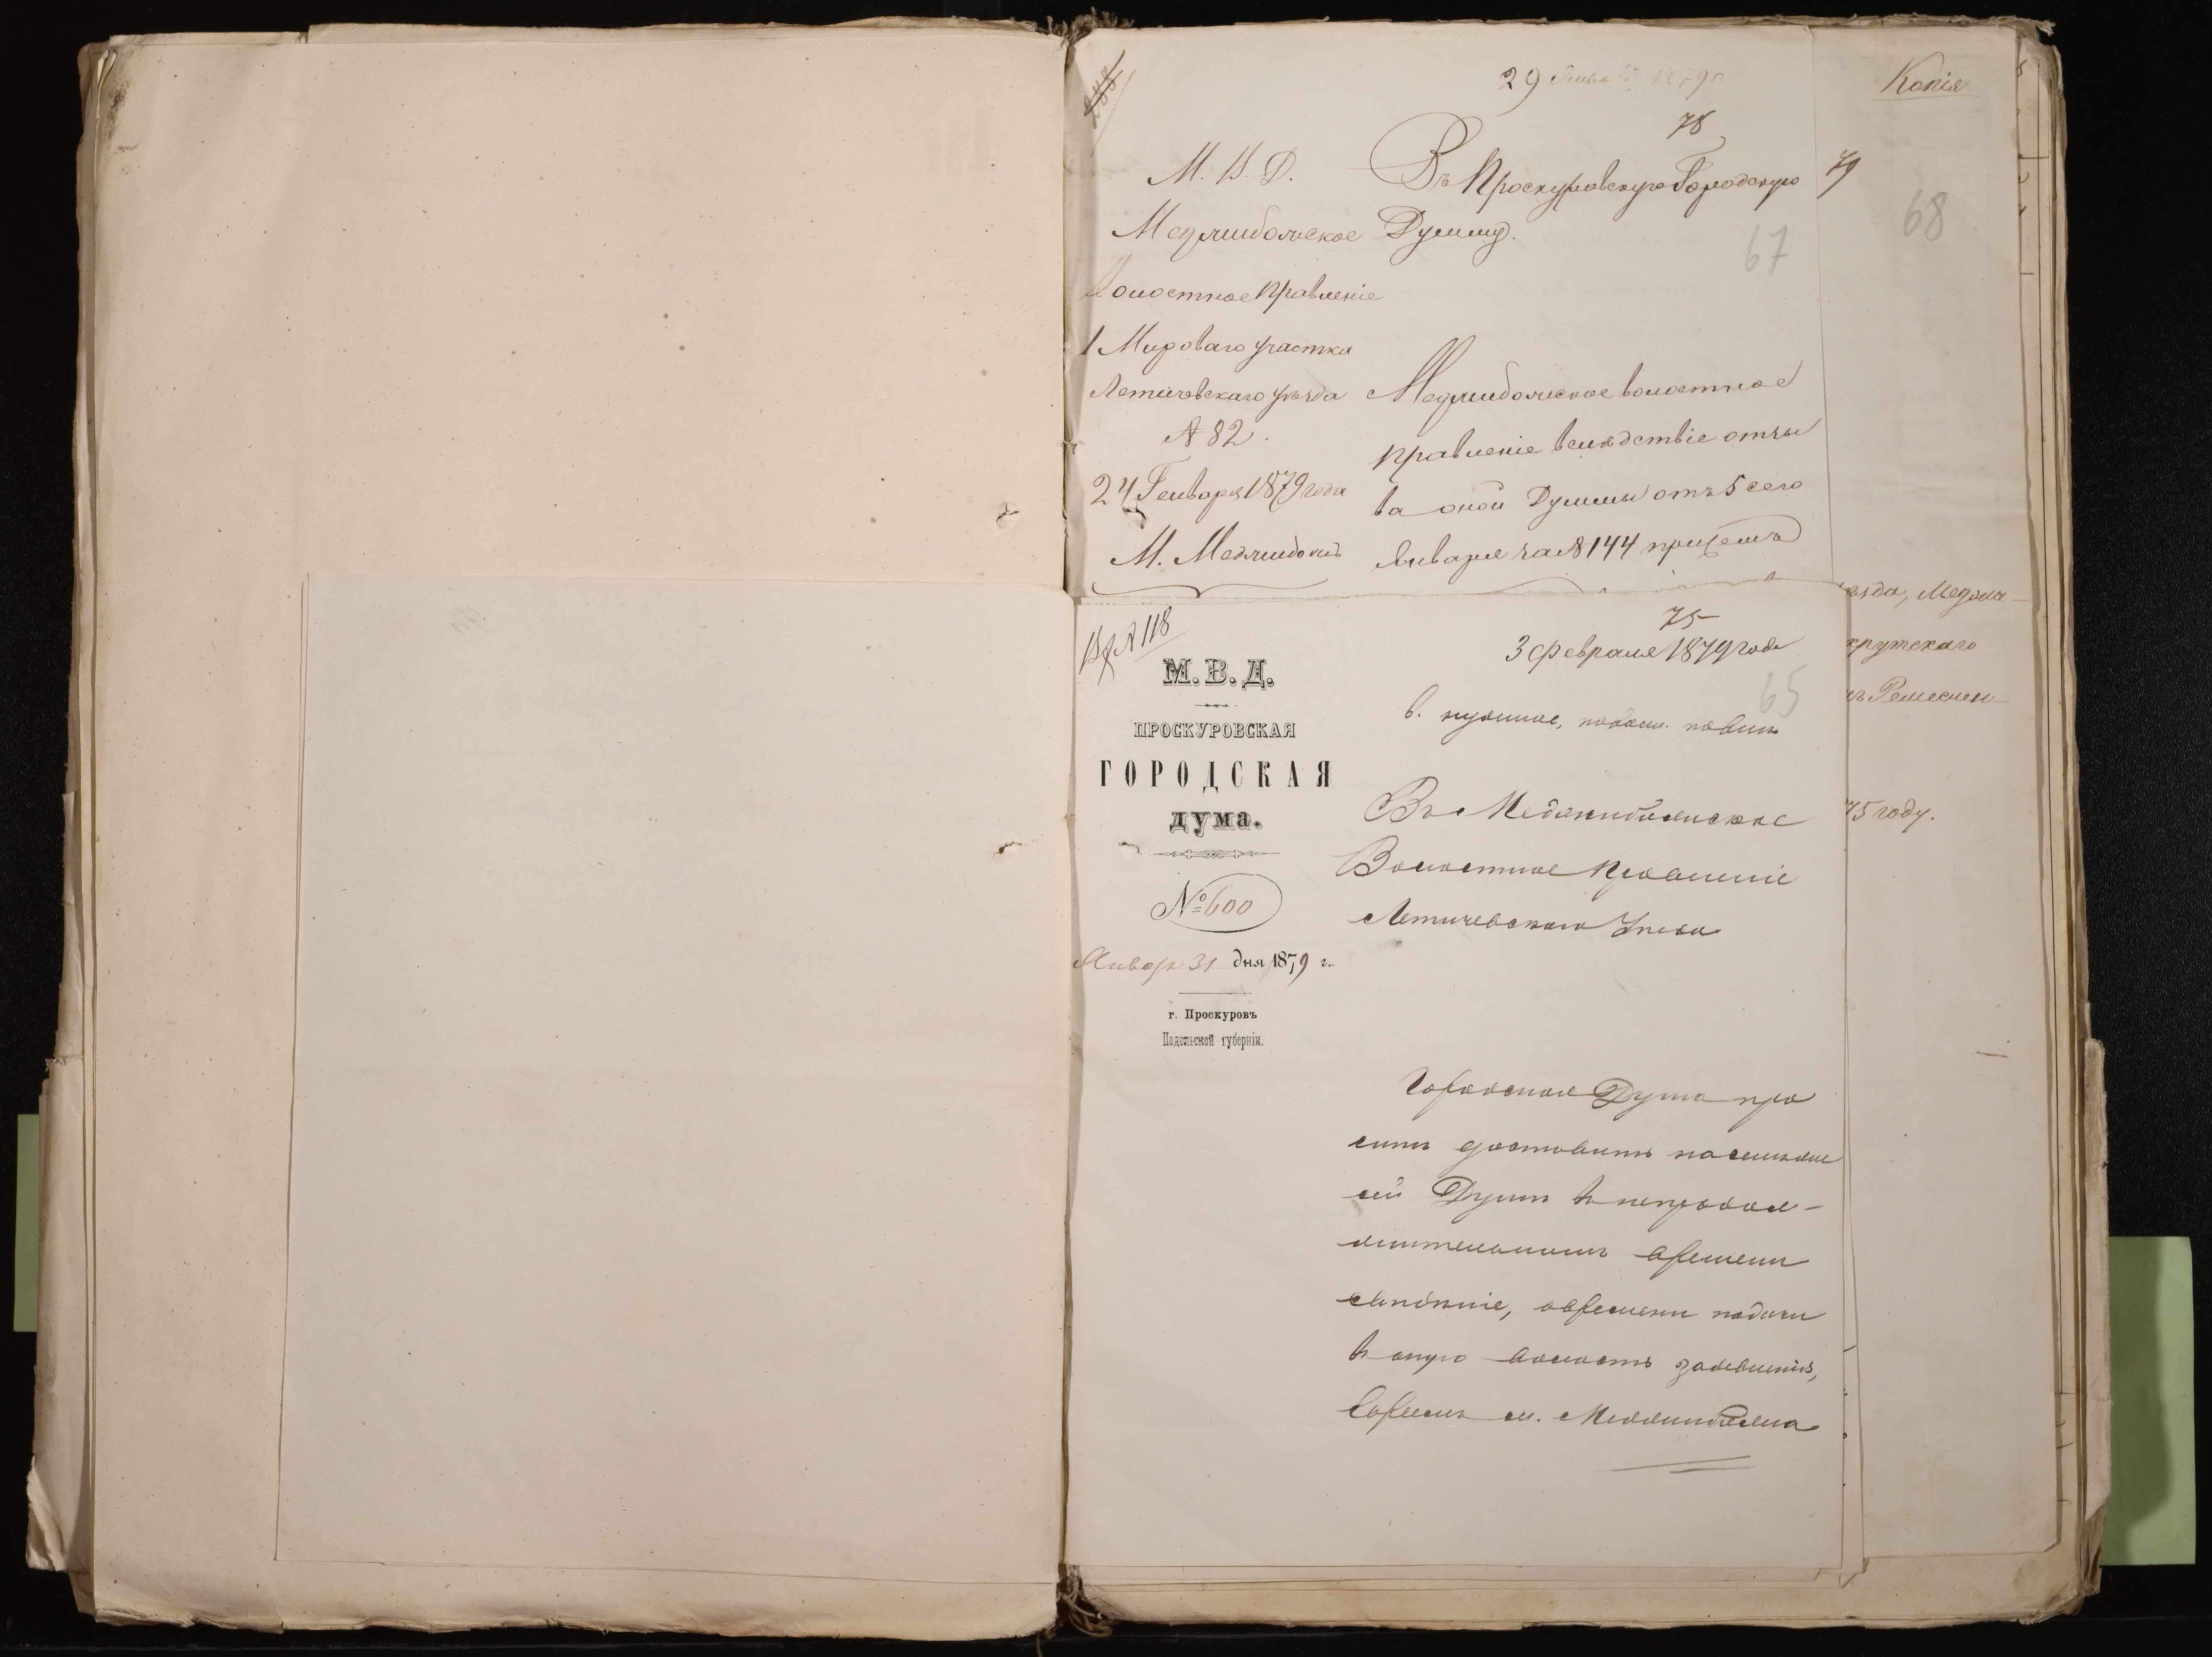 29
78
М. В. Д.
Меджибожское
Волостное Правленіе
1 Мироваго участка
Летичевскаго уѣзда
№ 82.
24 Генваря 1879 года
М. Меджибожъ
Въ Проскуровскую Городскую
Думму.
67
Меджибожское волостное
правленіе вслѣдствіе отзы
ва оной Думмы отъ 5 сего
Января за № 144 при семъ
Копія
79
68
ѣзда, Меджи-
крутскаго
Ремеслен-
75 году.
Вх № 118
М. В. Д.
ПРОСКУРОВСКАЯ
ГОРОДСКАЯ
ДУМА.
№ 600
Январ 31 дня 1879 г.
г. Проскуровъ
Подольской губерніи.
75
3 февраля 1879 года
65
Въ Меджибожское
Волостное Правленіе
Летичевскаго Уѣзда
Городская Дума про
ситъ доставить
сей Думѣ въ непродол-
жительномъ времени
свѣдѣніе, о времени подачи
въ оную волость заявленія,
евреемъ м. Меджибожа